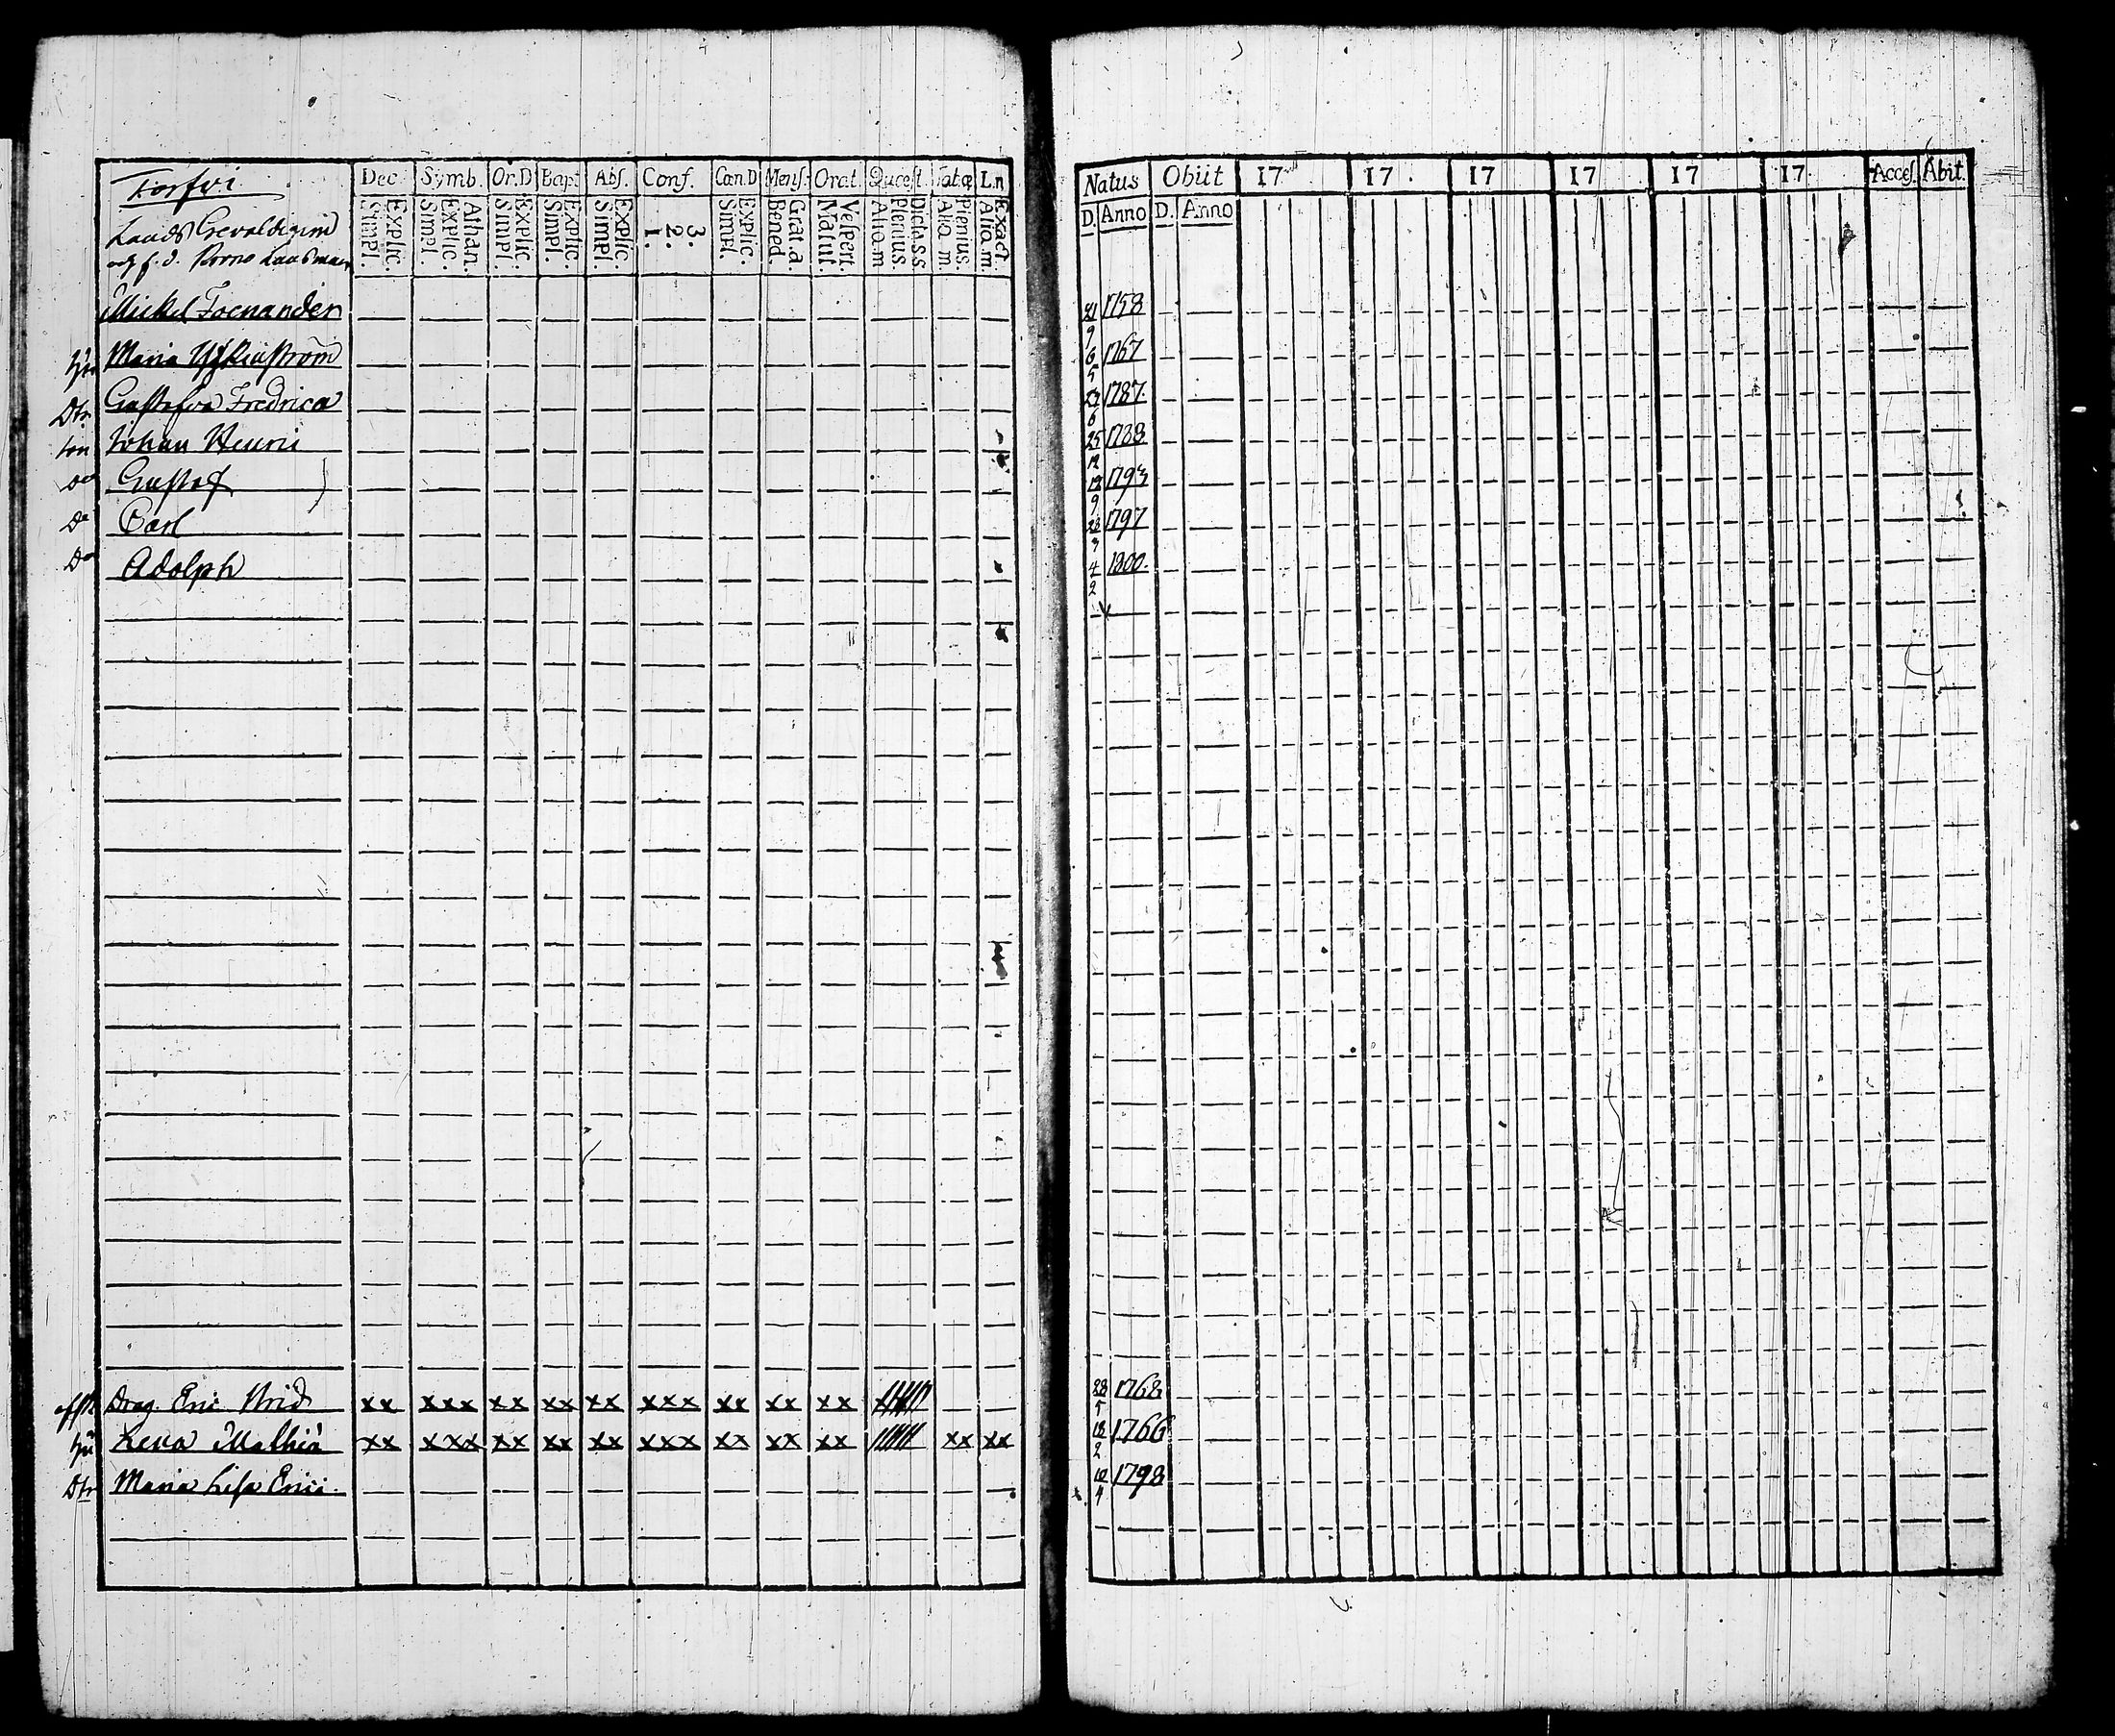 Torfvi
Dec. Symb. Or.D Bapt Abs. Conf. Can.D Mens. Orat. Quæst. Tabæ L.n
Simpl. Explic. Simpl. Explic. Athan. Simpl. Explic. Simpl. Explic. Simpl. Explic. 1. 2. 3. Simpl. Explic. Bened. Grat.a. Matut. Vespert. Alia.m Plenius. Dicta.s.s Alia.m. Plenius. Alia.m. Exact.
Natus Obiit 17 17 17 17 17 17 Acces. Abit.
D. Anno D. Anno
Mickel Focnander 21/9 1758
Hu Maria 6/5 1767
Dtr Gustafva Fredrica 27/6 1787
son Johan Henric 25/12 1788
Do Gustaf 18/9 1793
Do Carl 28/3 1797
Do Adolph 4/2 1800
Drag. Eric xx xxx xx xx xx xxx xx xx xx 28/5 1768
Hu Lena Mathiä xx xxx xx xx xx xxx xx xx xx xx xx 18/2 1766
Dtr Maria Lisa Erici 10/4 1798